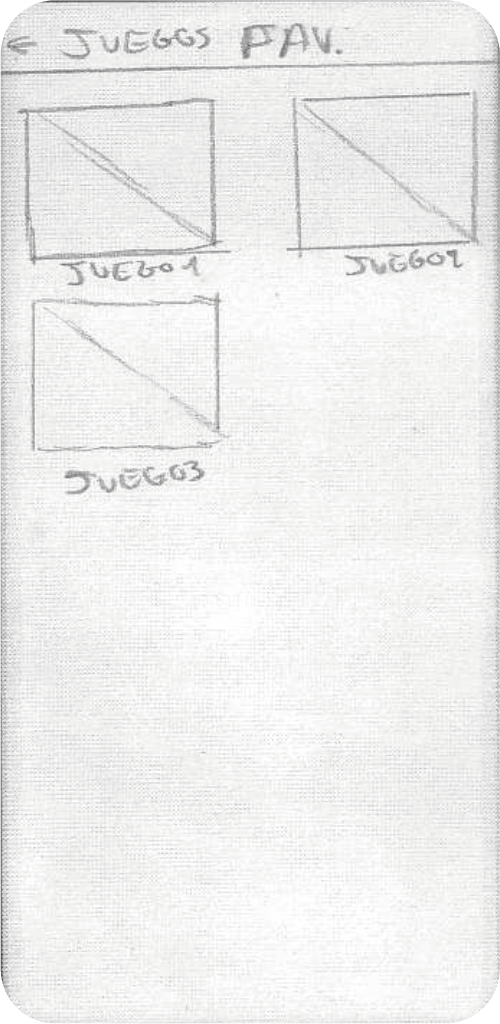 ← JUEGOS FAV.
JUEGO1
JUEGO2
JUEGO3